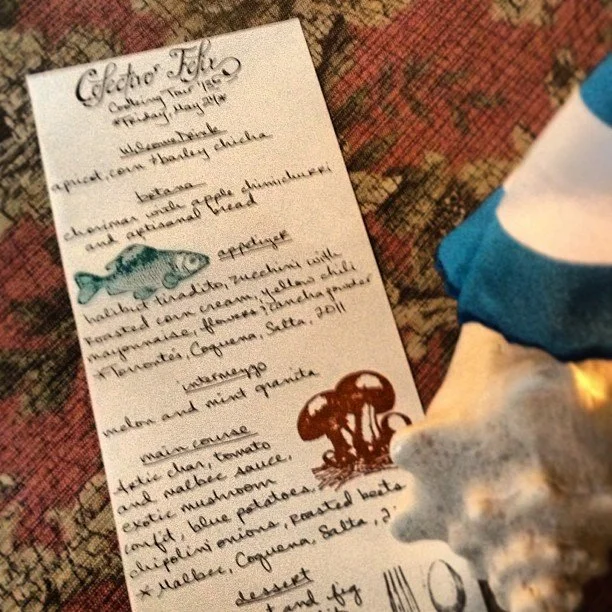 Colectivo Felix
Cooking Tour '13
*Friday, May 24*
Welcome Drink
apricot, corn + barley chicha
botana
chorimar with apple chimichurri
and artisanal bread
appetizer
halibut tiradito, zucchini with
roasted corn cream, yellow chili
mayonnaise, flowers, concha powder
*Torrontés, Coquena, Salta, 2011
intermezzo
melon and mint granita
main course
Artic char, tomato
and malbec sauce,
exotic mushroom
confit, blue potatoes,
chipolini onions, roasted beets
*Malbec, Coquena, Salta, 2
dessert
t and fig